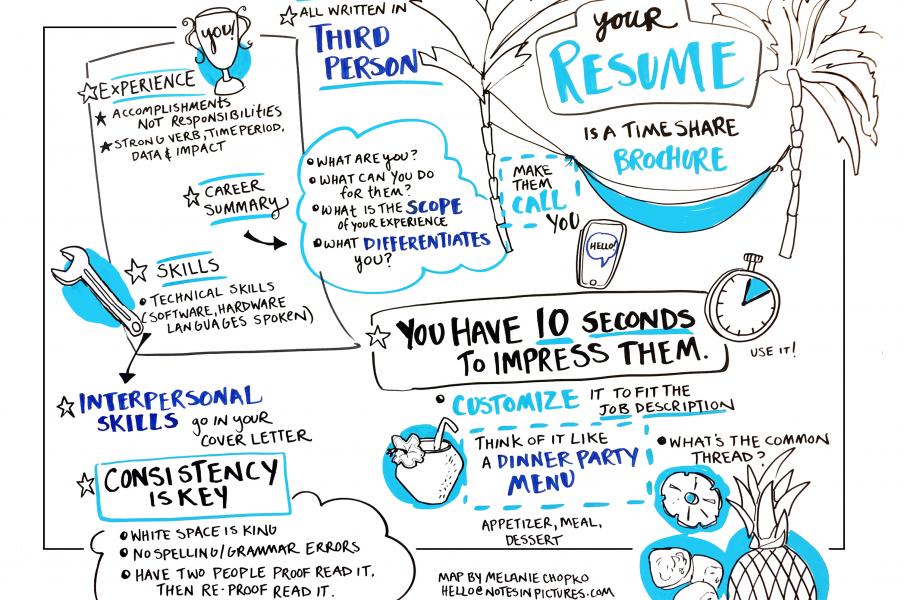 you!
ALL WRITTEN IN
THIRD
PERSON
EXPERIENCE
ACCOMPLISHMENTS
NOT RESPONSIBILITIES
STRONG VERB, TIME PERIOD,
DATA & IMPACT
CAREER
SUMMARY
WHAT ARE you?
WHAT CAN YOU DO
for THEM?
WHAT IS THE SCOPE
of YOUR EXPERIENCE
WHAT DIFFERENTIATES
you?
SKILLS
TECHNICAL SKILLS
(SOFTWARE, HARDWARE
LANGUAGES SPOKEN)
INTERPERSONAL
SKILLS go IN YOUR
COVER LETTER
CONSISTENCY
IS KEY
WHITE SPACE IS KING
NO SPELLING/GRAMMAR ERRORS
HAVE TWO PEOPLE PROOF READ IT,
THEN RE-PROOF READ IT.
youR
RESUME
IS A TIMESHARE
BROCHURE
MAKE
THEM
CALL
YOU
HELLO!
YOU HAVE 10 SECONDS
TO IMPRESS THEM.
USE IT!
CUSTOMIZE IT TO FIT THE
JOB DESCRIPTION
THINK OF IT LIKE
A DINNER PARTY
MENU
APPETIZER, MEAL,
DESSERT
WHAT'S THE COMMON
THREAD?
MAP BY MELANIE CHOPKO
HELLO@NOTESINPICTURES.COM